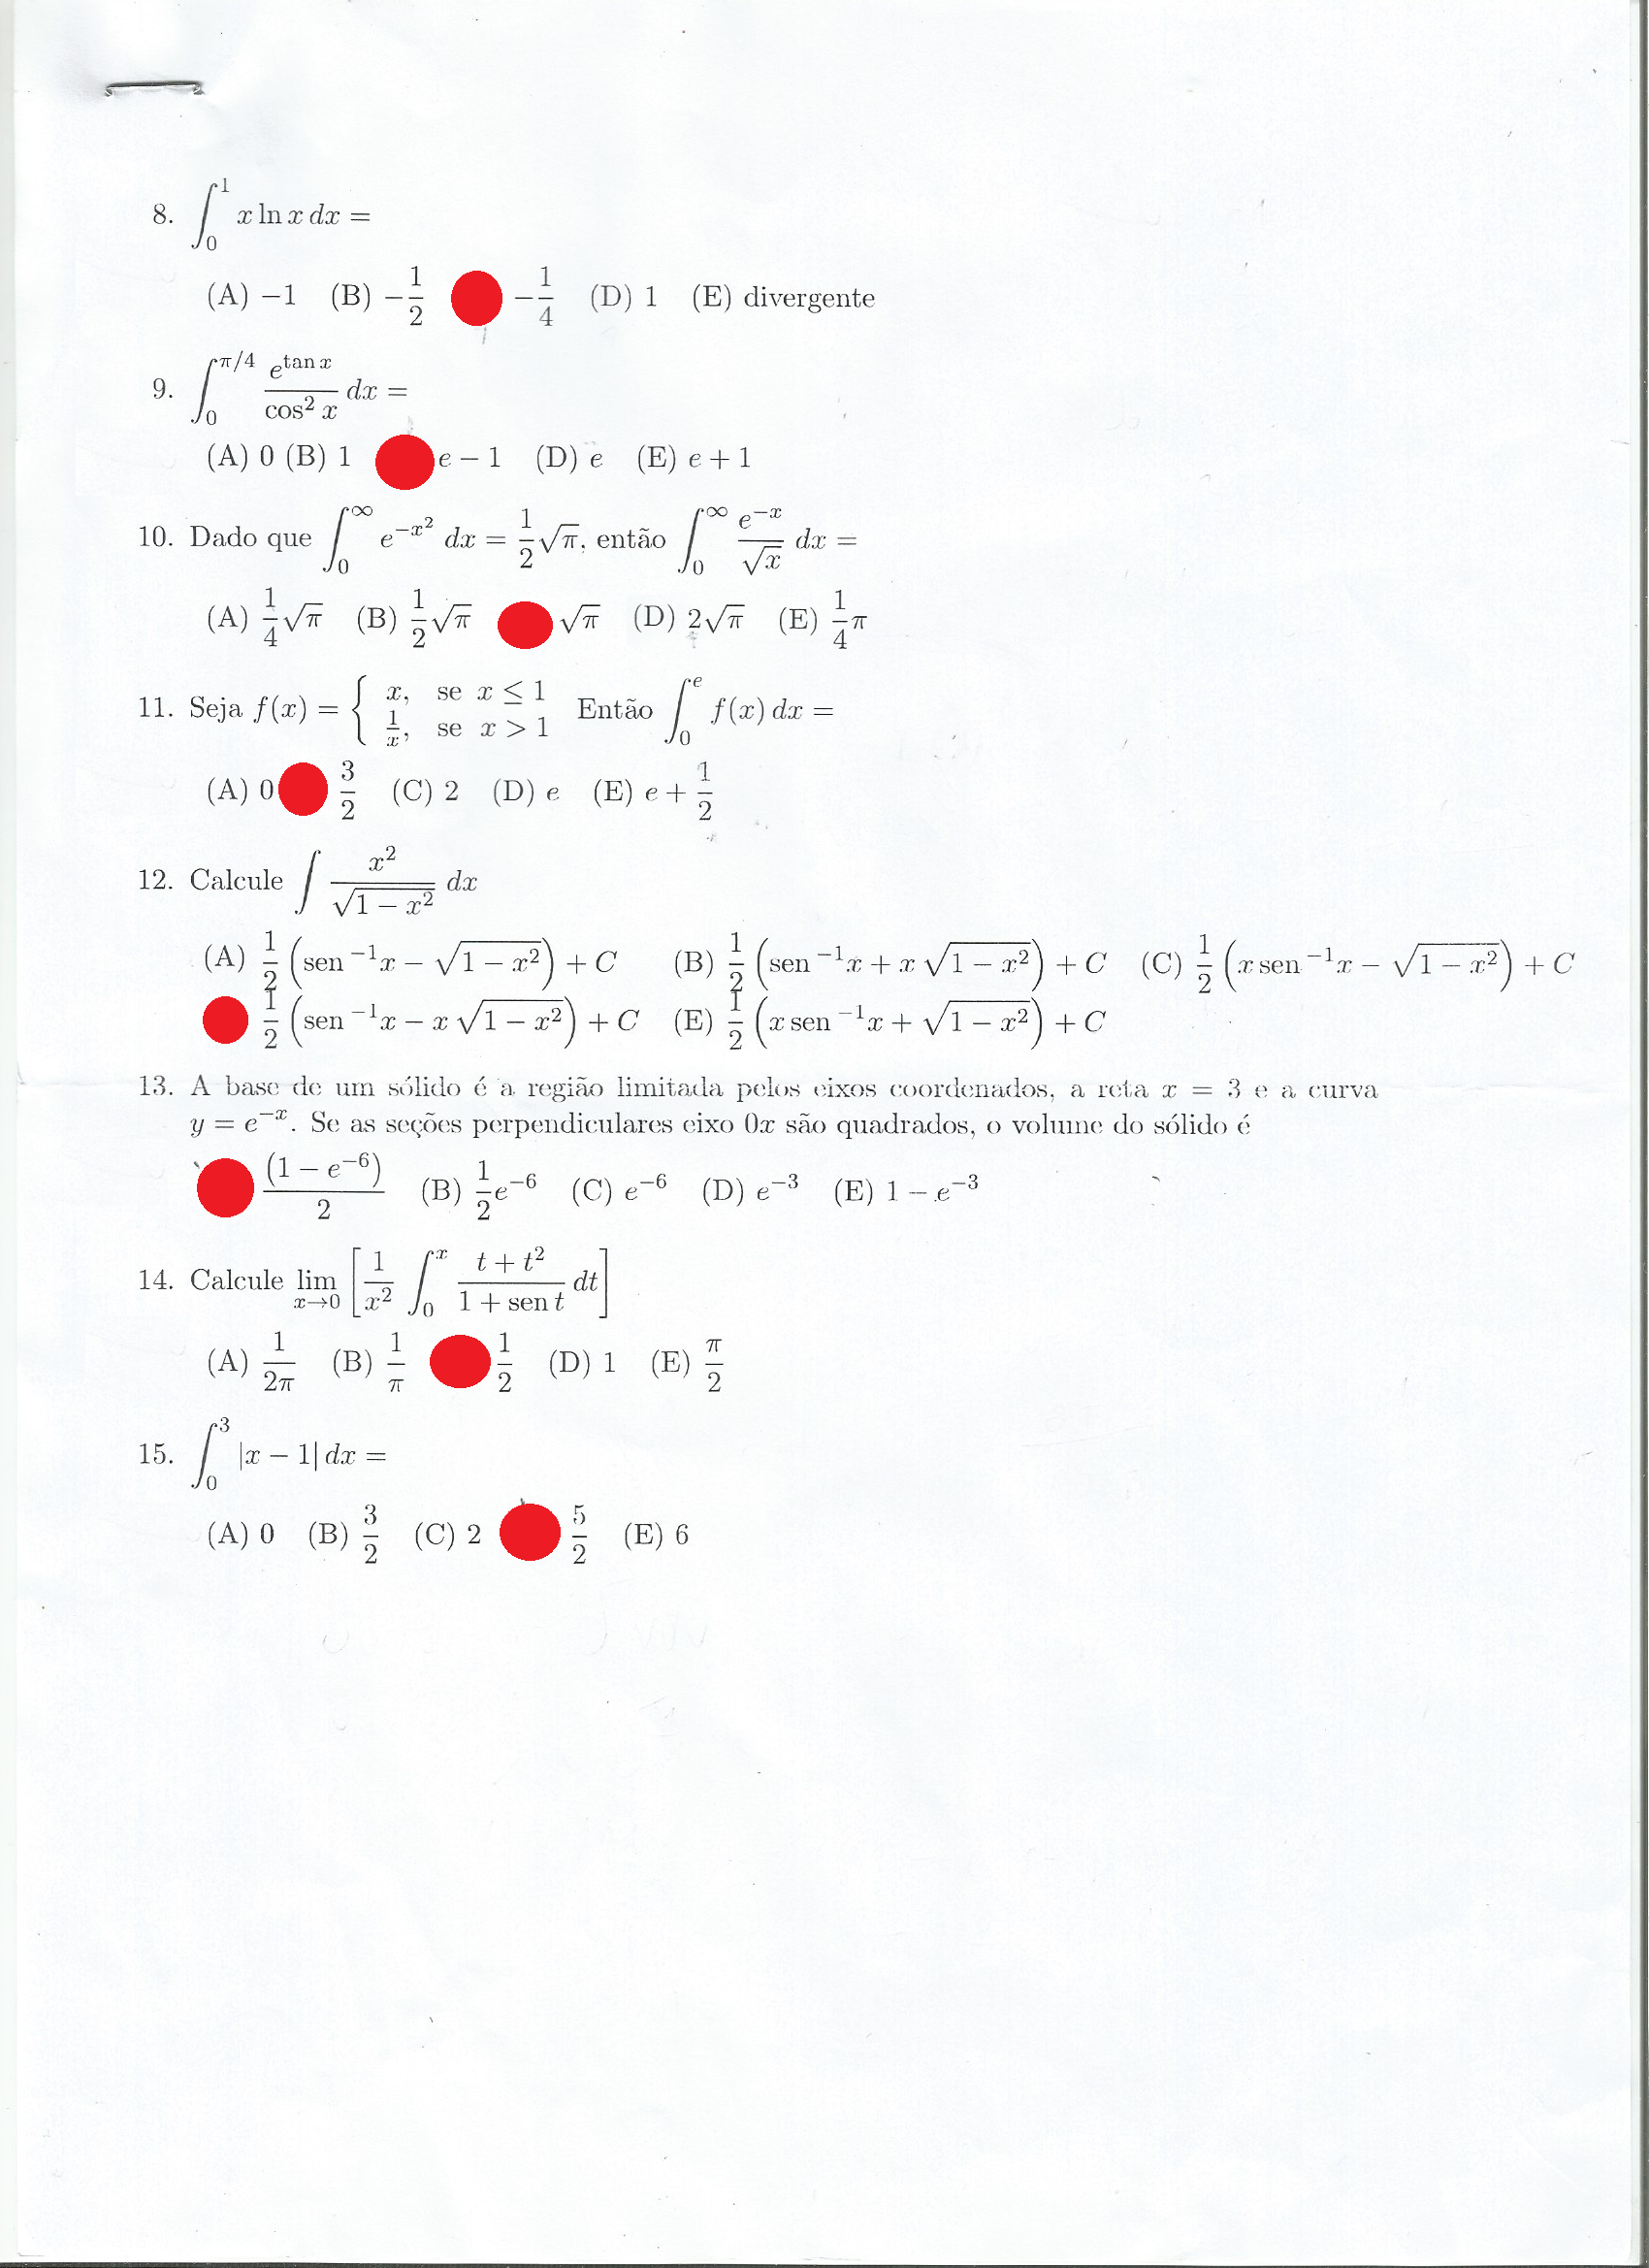 8. ∫₀¹ x ln x dx =
(A) −1 (B) −1/2 −1/4 (D) 1 (E) divergente
9. ∫₀^{π/4} e^{tan x}/cos² x dx =
(A) 0 (B) 1 e − 1 (D) e (E) e + 1
10. Dado que ∫₀^∞ e^{−x²} dx = 1/2 √π, então ∫₀^∞ e^{−x}/√x dx =
(A) 1/4 √π (B) 1/2 √π √π (D) 2√π (E) 1/4 π
11. Seja f(x) = { x, se x ≤ 1
1/x, se x > 1 Então ∫₀^e f(x) dx =
(A) 0 3/2 (C) 2 (D) e (E) e + 1/2
12. Calcule ∫ x²/√(1 − x²) dx
(A) 1/2 (sen⁻¹x − √(1 − x²)) + C (B) 1/2 (sen⁻¹x + x √(1 − x²)) + C (C) 1/2 (x sen⁻¹x − √(1 − x²)) + C
1/2 (sen⁻¹x − x √(1 − x²)) + C (E) 1/2 (x sen⁻¹x + √(1 − x²)) + C
13. A base de um sólido é a região limitada pelos eixos coordenados, a reta x = 3 e a curva
y = e^{−x}. Se as seções perpendiculares eixo 0x são quadrados, o volume do sólido é
(1 − e^{−6})/2 (B) 1/2 e^{−6} (C) e^{−6} (D) e^{−3} (E) 1 − e^{−3}
14. Calcule lim_{x→0} [1/x² ∫₀^x (t + t²)/(1 + sen t) dt]
(A) 1/2π (B) 1/π 1/2 (D) 1 (E) π/2
15. ∫₀³ |x − 1| dx =
(A) 0 (B) 3/2 (C) 2 5/2 (E) 6